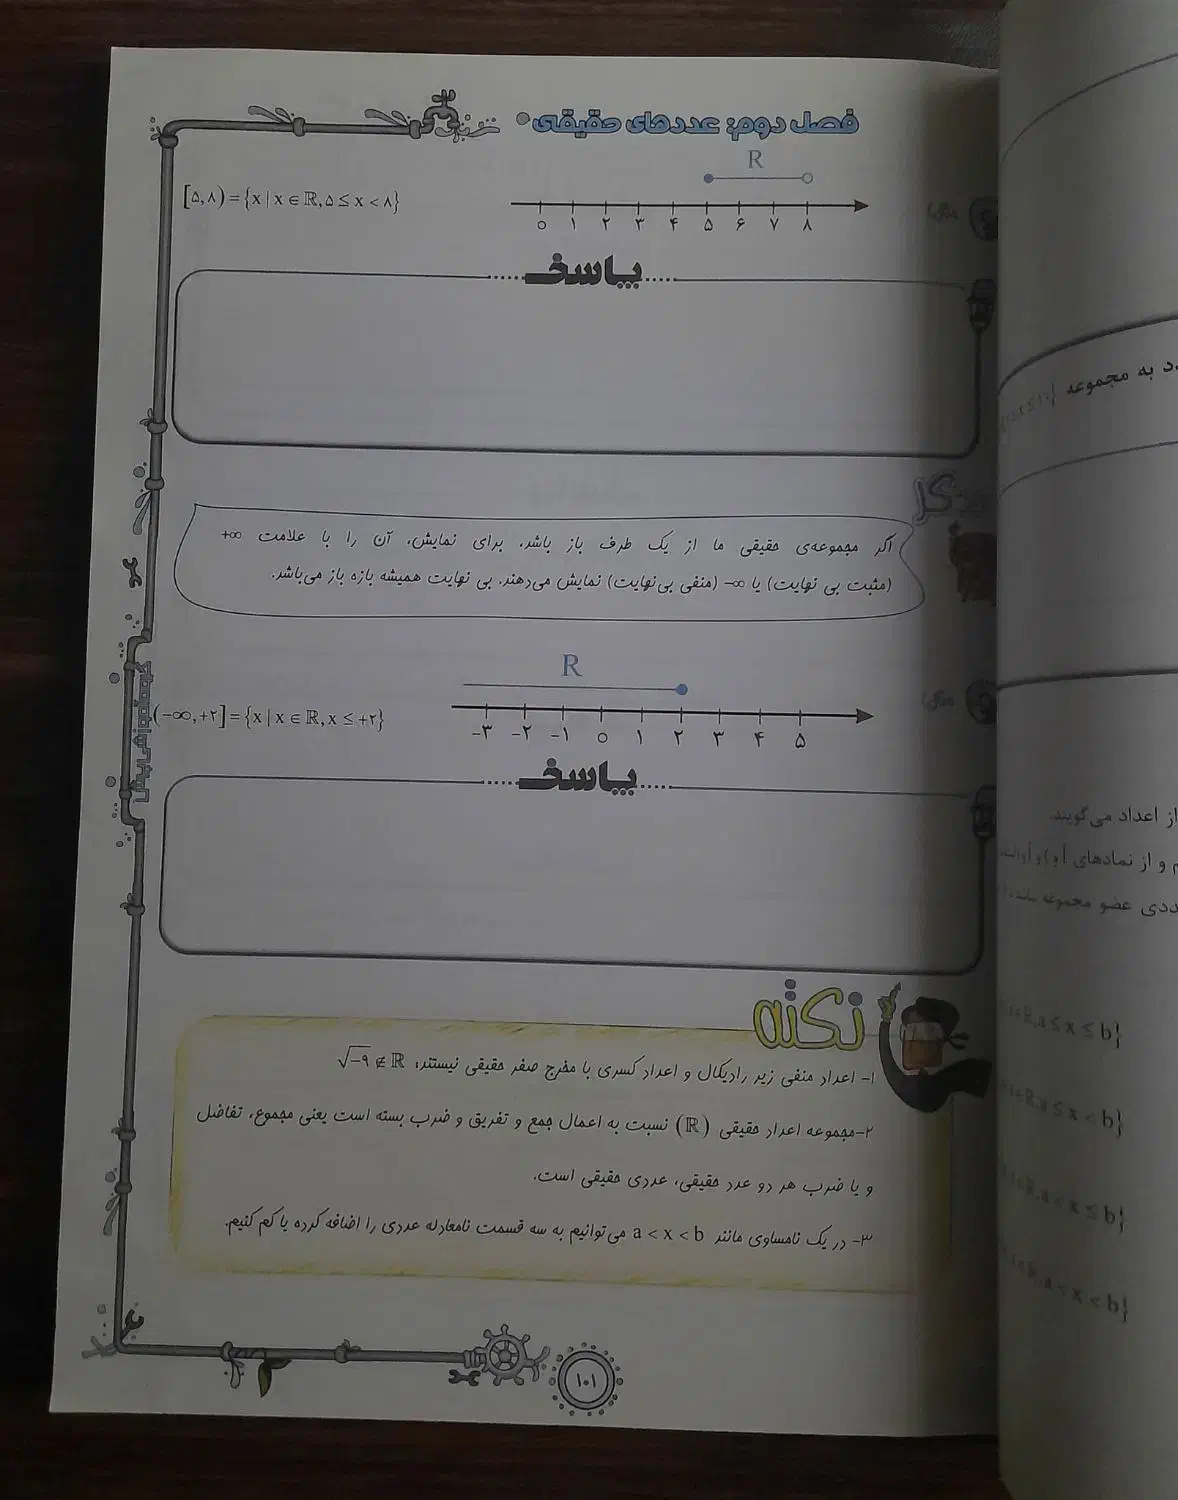 فصل دوم: عددهای حقیقی
R
[۵,۸)={x|x∈ℝ,۵≤x<۸}
۰ ۱ ۲ ۳ ۴ ۵ ۶ ۷ ۸
مثال
پاسخ
تذکر
اگر مجموعه‌ی حقیقی ما از یک طرف باز باشد، برای نمایش، آن را با علامت ∞+
(مثبت بی نهایت) یا ∞- (منفی بی‌نهایت) نمایش می‌دهند. بی نهایت همیشه بازه باز می‌باشد.
R
مثال
(-∞,+۲]={x|x∈ℝ,x≤+۲}
-۳ -۲ -۱ ۰ ۱ ۲ ۳ ۴ ۵
پاسخ
نکته
۱- اعداد منفی زیر رادیکال و اعداد کسری با مخرج صفر حقیقی نیستند، √-۹∉ℝ
۲-مجموعه اعداد حقیقی (ℝ) نسبت به اعمال جمع و تفریق و ضرب بسته است یعنی مجموع، تفاضل
و یا ضرب هر دو عدد حقیقی، عددی حقیقی است.
۳- در یک نامساوی مانند a<x<b می‌توانیم به سه قسمت نامعادله عددی را اضافه کرده یا کم کنیم.
۱۰۱
به مجموعه
از اعداد می‌گویند.
و از نمادهای
عضو مجموعه
a≤x≤b}
a≤x<b}
a<x≤b}
a<x<b}